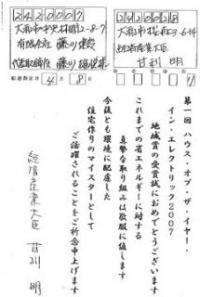 2420007
大和市中央林間2-8-7
有限会社 藤
代表取締役 藤
2420007
経済産業大臣
甘利 明
配達指定日 4月8日
第一回 ハウス・オブ・ザ・イヤー・
イン・エレクトリック2007
地域賞の受賞誠におめでとうございます
これまでの省エネルギーに対する
真摯な取り組みは敬服に値します
今後とも環境に配慮した
住宅作りのマイスターとして
ご活躍されることをご祈念申上げます
経済産業大臣 甘利 明